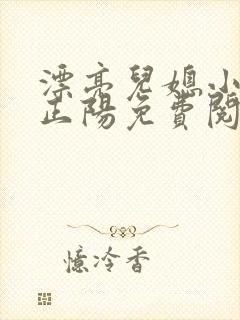 漂亮兒媳小
正陽免費閱
憶冷香